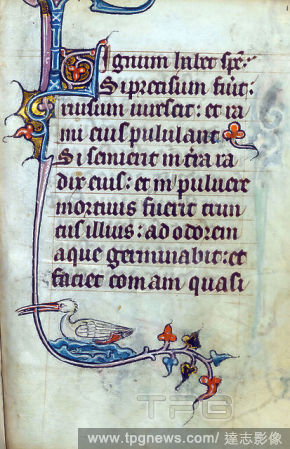 Lignum habet spē:
Si precisum fuit:
rursum uirescit: et ra
mi eius pululant
Si senuerit in t̄ra ra
dix eius: et in puluere
mortuus fuerit trun
cus illius: ad odorem
aque germinabit: et
faciet comam quasi
TPG
www.tpgnews.com/ 達志影像